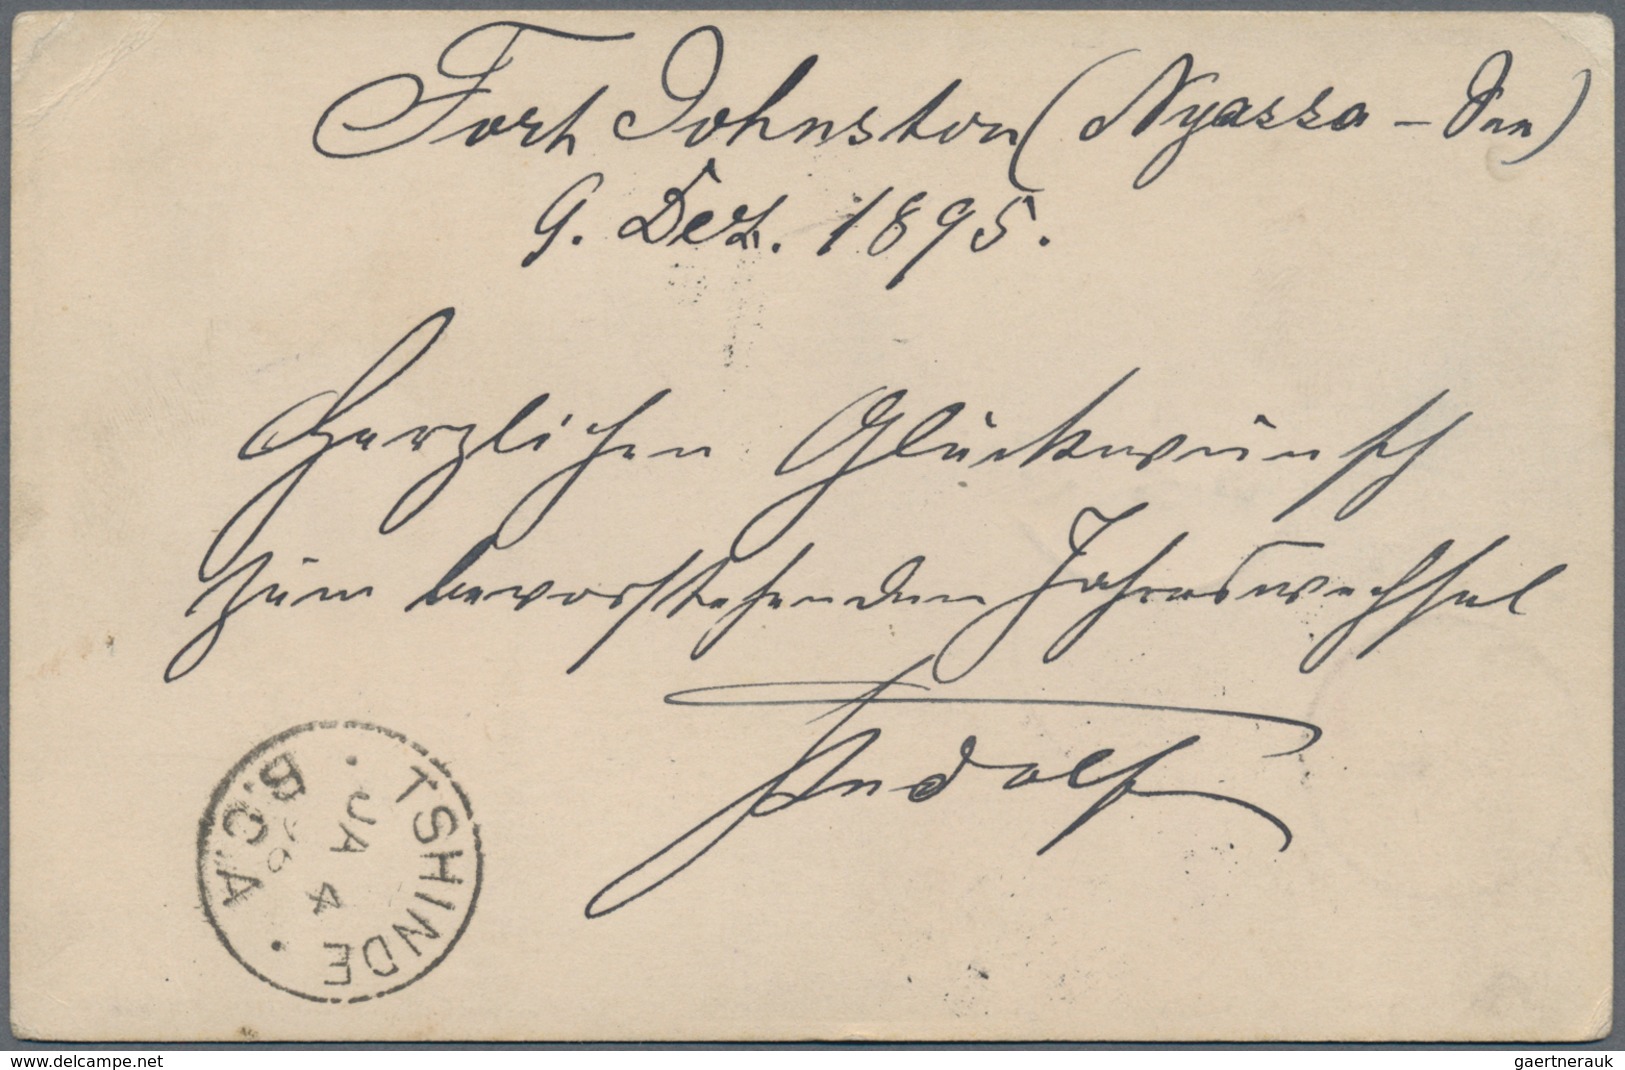 Fort Johnston (Nyassa-See)
9. Dez. 1895.
Herzlichen Glückwunsch
zum bevorstehenden Jahreswechsel
Rudolf
TSHINDE
B.C.A
JA 4
www.delcampe.net
gaertnerauk